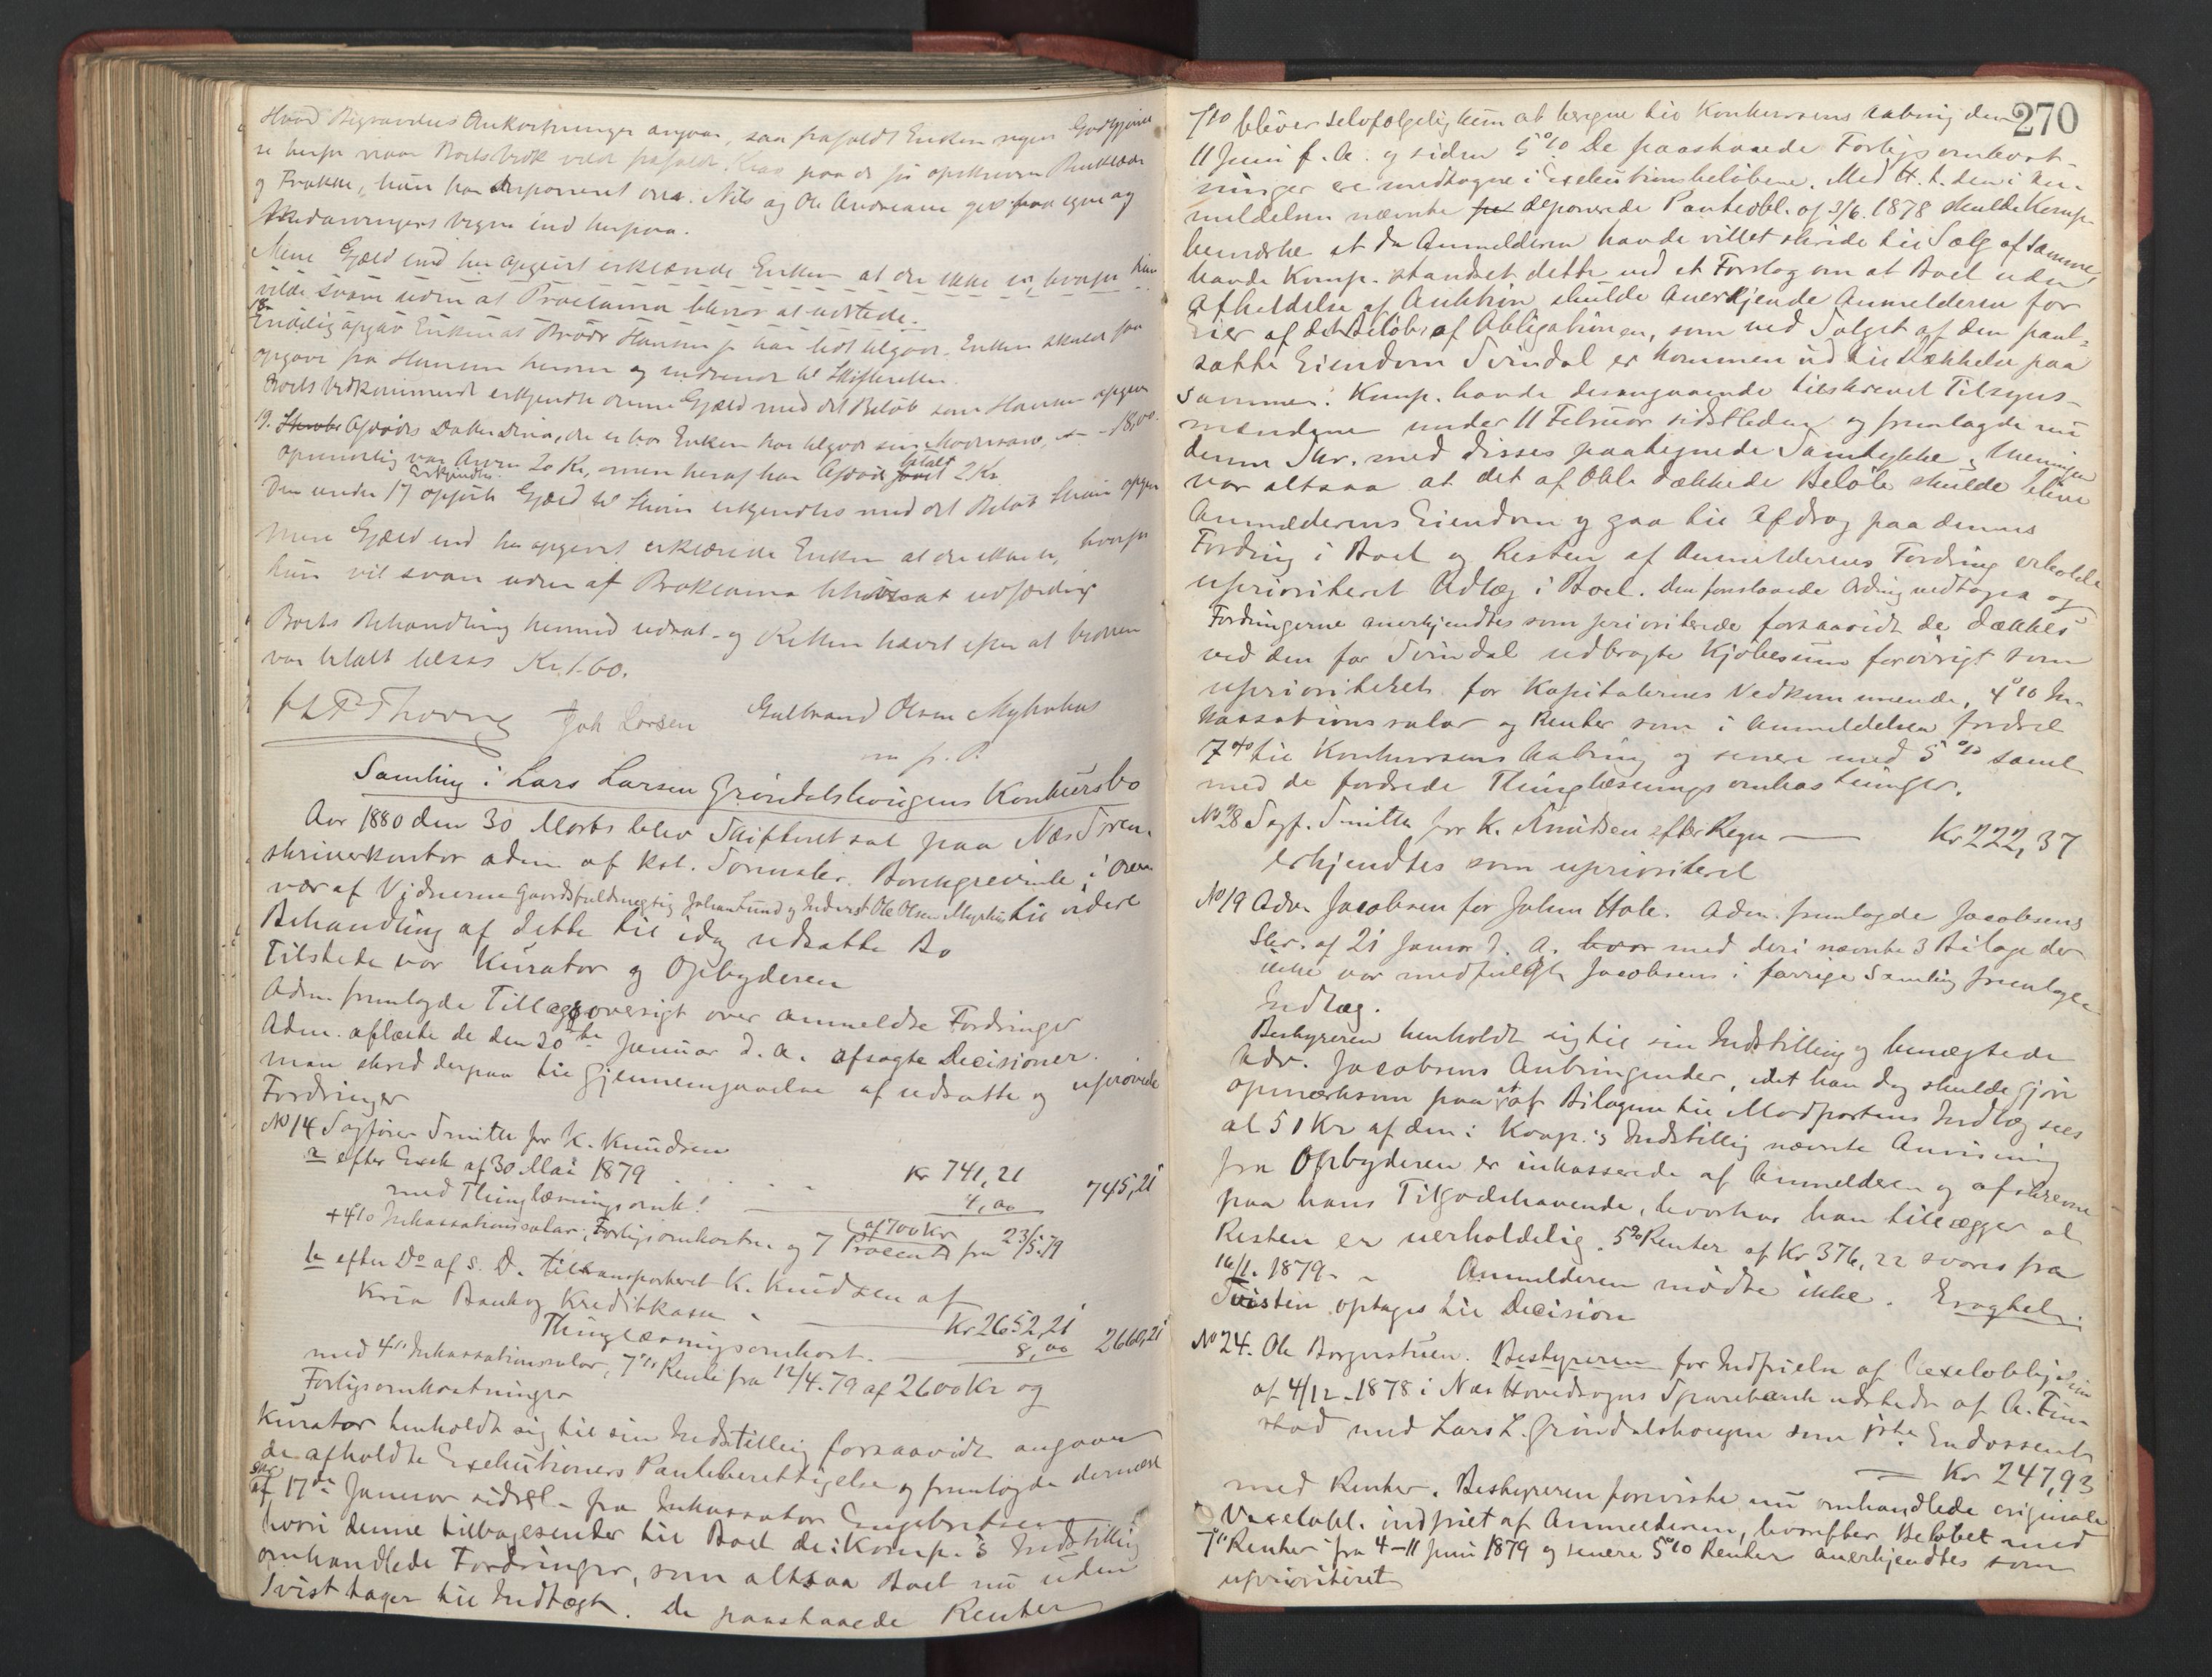 Hvad Bigravelses Omkostninger angaar, saa frafaldt Enken nogen Godtgjørel
se herfor naar Boets Vedk vilde frafalde Krav paa de før opskrevne Buxer
og Frakke, hun har deponeret. Nils og Ole Andreasen gik paa egne og
Medarvingers Vegne ind herpaa.
Mere Gjæld end her opgivet erklærede Enken at der ikke er, hvorfor hun
vilde svare uden at Proclama bliver at udstede.
18 Endelig opgav Enken at Brødr Hansen jr har lidt tilgode. Enken skulde faa
opgave fra Hansen herom og indsende til Skifteretten.
Boets Vedkommende erkjendte denne Gjæld med det Beløb som Hansen opgiver
19. Afdødes Datter Dina, der er hos Enken har tilgode sin Mødrenearv, 18,00.
oprindelig var Arven 20 Kr, men heraf har Afdøde betalt 2 Kr. Erkjendtes
Den under 17 opførte Gjæld til erkjendtes med det Beløb opgiver
Mere Gjæld end her opgivet erklærede Enken at der ikke er, hvorfor
hun vil svare uden at Proklama behøves at udfærdiges
Boets Behandling hermed udsat og Retten hævet efter at
var betalt Kr 1.60.
Joh Larsen Gulbrand Olsen Myhrhus
m. p. P.
Samling i Lars Larsen Grøndalshougens Konkursbo
Aar 1880 den 30 Marts blev Skifteret sat paa Nes Soren-
skriverkontor adm. af kst. Sorenskr. Borchgrevink, i Over-
vær af Vidnerne Gaardsfuldmægtig Johan Lund og Inderst Ole Olsen Myrhus til videre
Behandling af dette til idag udsatte Bo
Tilstede var Kurator og Opbyderen
Adm. fremlagde Tillægsoversigt over anmeldte Fordringer
Adm. oplæste de den 20de Januar d. a. afsagte Decisioner.
man skred derpaa til Gjennemgaaelse af udsatte og uprøvede
Fordringer
No 14 Sagfører Smith for K. Knudsen
a efter Exek af 30 Mai 1879 . . . . Kr 741,21
med Thinglæsningsomk! 4,00 745,21
+ 4% Inkassationssalær, Forligsomkostn. og 7 Procent af 700 Kr fra 23/5.79
b efter Do af s. D. tiltransporteret K. Knudsen af
Kria Bank og Kreditkasse Kr 2652,21
Thinglæsningsomkost. 8,00 2660,21
med 4% Inkassationssalær, 7% Rente fra 12/4.79 af 2600 Kr og
Forligsomkostninger
Kurator henholdt sig til sin Indstilling forsaavidt angaar
de afholdte Exekutioners Panteberettigelse og fremlagde dernæst
Skr af 17de Januar sidstl. fra Inkassator Engebretsen
hvori denne tilbagesender til Boet de i Komp.'s Indstilling
omhandlede Fordringer, som altsaa Boet nu uden
Tvist tager til Indtægt. De paastaaede Renter
270
7% bliver selvfølgelig kun at beregne til Konkursens Aabning den
11 Juni f. A. og siden 5%. De paastaaede Forligsomkost-
ninger er medtagne i Exekutionsbeløbene. Med H. t. den i An-
meldelsen nævnte deponerede Panteobl. af 3/6. 1878 skulde Komp.
bemærke at da Anmelderen havde villet skride til Salg af samme
havde Komp. standset dette ved et Forslag om at Boet uden
Afholdelse af Auktion skulde anerkjende Anmelderen for
Eier af det Beløb af Obligationen, som ved Salget af den pant-
satte Eiendom Svindal er kommen ud til Dækkelse paa
samme. Komp. havde desangaaende tilskrevet Tilsyns-
mændene under 11 Februar sidstleden og fremlagde nu
denne Skr. med disses paategnede Samtykke. Meningen
var altsaa at det af Obl. dækkede Beløb skulde blive
Anmelderens Eiendom og gaa til Afdrag paa dennes
Fordring i Boet og Resten af Anmelderens Fordring erholde
uprioriteret Udlæg i Boet. Den foreslaaede Ordning vedtoges og
Fordringerne anerkjendtes som prioriterede forsaavidt de dækkes
ved den for Svindal udbragte Kjøbesum forøvrigt som
uprioriteret for Kapitalernes Vedkommende, 4% In-
kassationssalær og Renter som i Anmeldelsen fordret
7% til Konkursens Aabning og senere med 5% samt
med de fordrede Thinglæsningsomkostninger.
No 28 Sagf. Smith for K. Knudsen efter Regn — Kr 222,37
erkjendtes som uprioriteret
No 19 Adv. Jacobsen for Johan Hole. Adm. fremlagde Jacobsens
Skr. af 21 Januar d. A. med deri nævnte 3 Bilage der
ikke var medfulgt Jacobsens i forrige Samling fremlagte
Indlæg.
Bestyreren henholdt sig til sin Indstilling og benægtede
Adv. Jacobsens Anbringender, idet han dog skulde gjøre
opmærksom paa at af Bilagene til Modpartens Indlæg sees
at 51 Kr af den i Komp.'s Indstilling nævnte Anvisning
fra Opbyderen er inkasserede af Anmelderen og afskrevne
paa hans Tilgodehavende, hvorhos han tillægger at
Resten er uerholdelig. 5% Renter af Kr 376,22 svares fra
16/1. 1879. Anmelderen mødte ikke.
Tvisten optages til Decision
No 24. Ole Borgerstuen. Bestyreren for Indfrielse af Vexelobligation
af 4/12 1878 i Nes Hovedsogns Sparebank udstedt af A. Fin-
stad med Lars L. Grøndalshougen som 1ste Endossent
— Kr 247,93
med Renter. Bestyreren foreviste nu omhandlede originale
Vexelobl. indfriet af Anmelderen, hvorefter Beløbet med
7% Renter fra 4-11 Juni 1879 og senere 5% Renter anerkjendtes som
uprioriteret